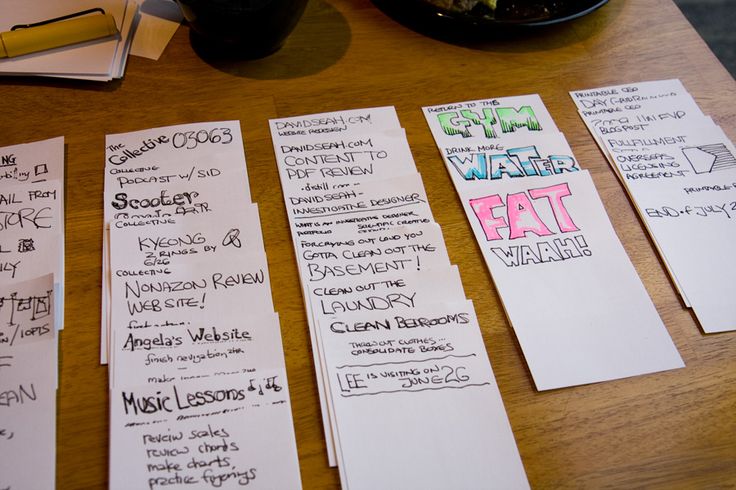 AIL FROM
STORE
The
Collective 03063
COLLECTIVE
PODCAST W/ SID
Scooter
COLLECTIVE
KYEONG
2 RINGS BY
6/26
COLLECTIVE
NONAZON REVIEW
WEBSITE!
Angela's Website
finish navigation
Music Lessons
review scales
review chords
make charts,
practice fingerings
DAVIDSEAH.COM
WEBSITE REDESIGN
DAVIDSEAH.COM
CONTENT TO
PDF REVIEW
DAVIDSEAH-
INVESTIGATIVE DESIGNER
WHAT IS AN INVESTIGATIVE DESIGNER
PORTFOLIO
FOR CRYING OUT LOUD YOU
GOTTA CLEAN OUT THE
BASEMENT!
CLEAN OUT THE
LAUNDRY
CLEAN BEDROOMS
THROW OUT CLOTHES...
CONSOLIDATE BOXES
LEE IS VISITING ON
JUNE 26
RETURN TO THE
GYM
DRINK MORE
WATER
FAT
WAAH!
PRINTABLE CEO
DAY GRID
PRINTABLE CEO
BLOG POST
FULFILLMENT
OVERSEAS
LICENSING
AGREEMENT
END OF JULY